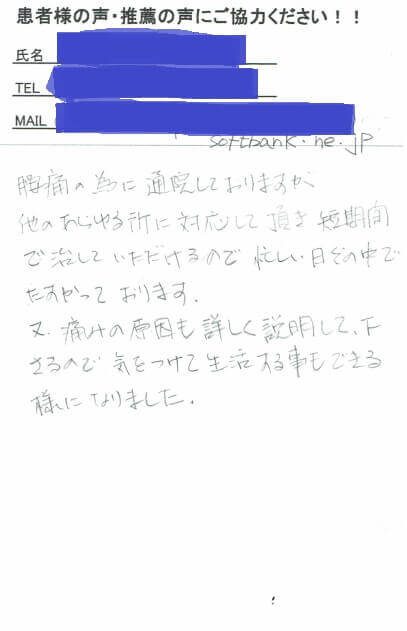 患者様の声・推薦の声にご協力ください！！
氏名
TEL
MAIL
softbank.ne.jp
腰痛の為に通院しておりますが
他のあらゆる所に対応して頂き短期間
で治していただけるので忙しい日々の中で
たすかっております.
又、痛みの原因も詳しく説明して、下
さるので気をつけて生活する事もできる
様になりました.